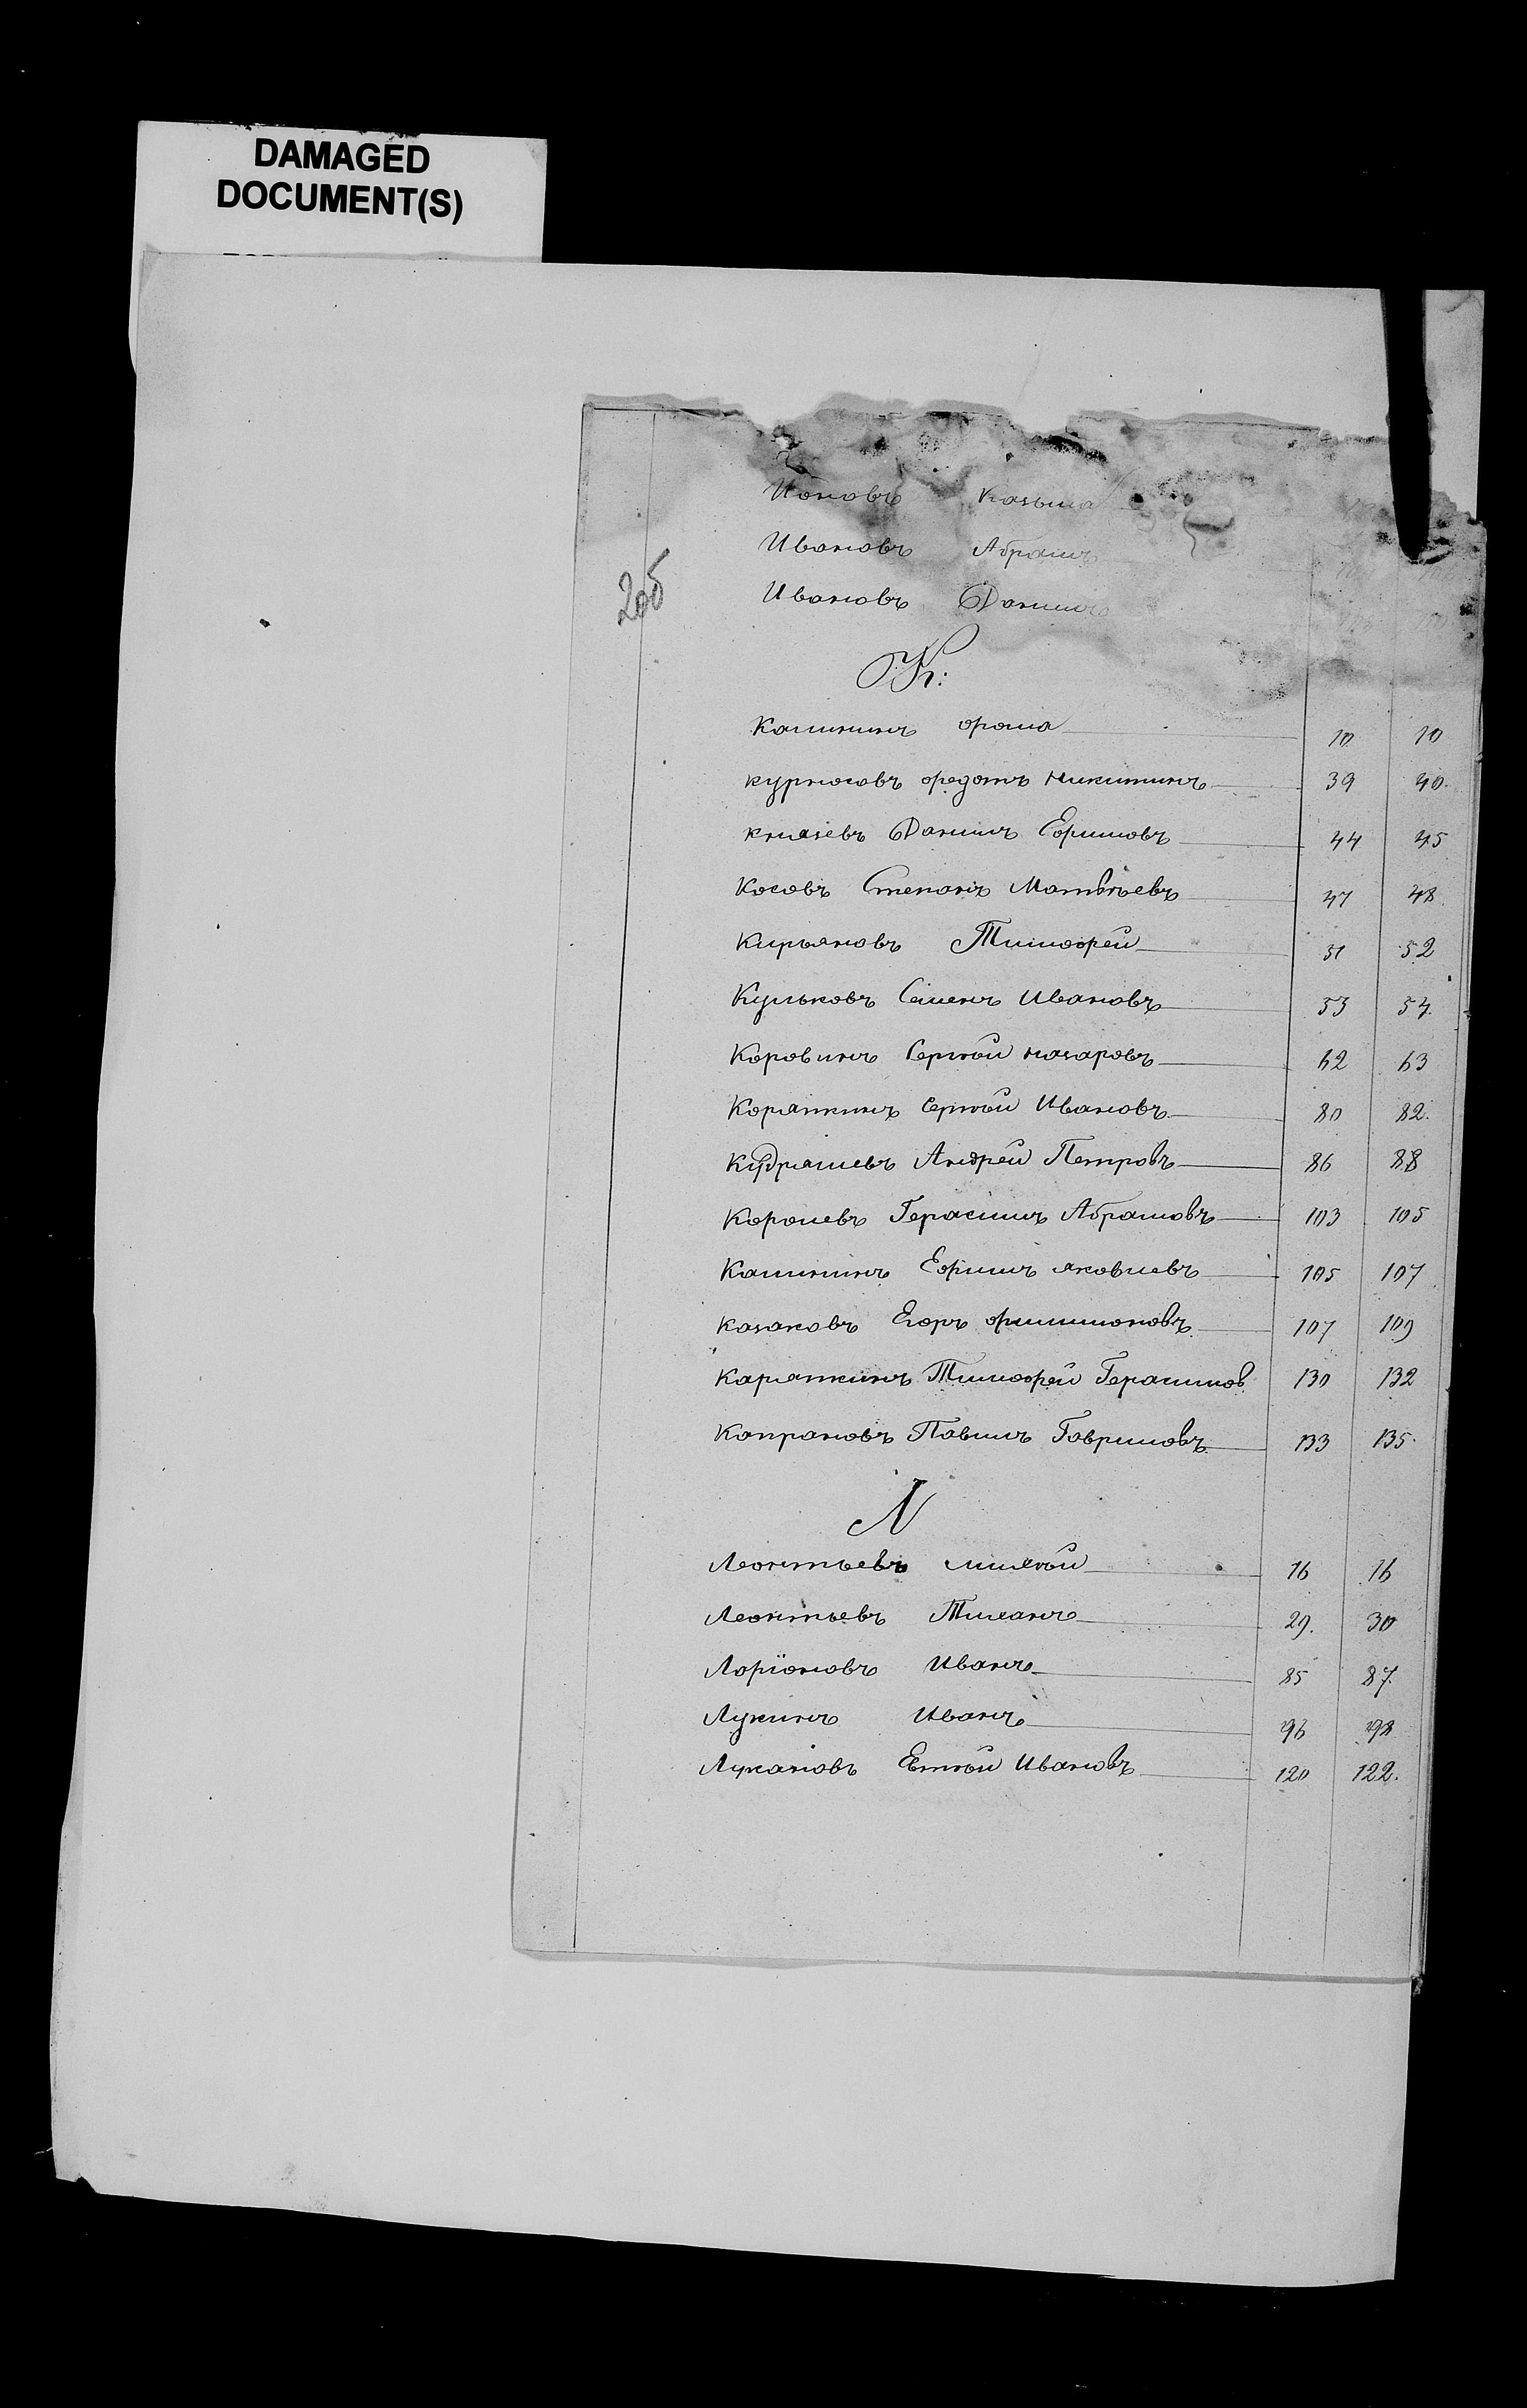 DAMAGED
DOCUMENT(S)
205
Ионовъ Казьма
Ивановъ Абрамъ
Ивановъ Данилъ
К:
Калининъ Фома 10 10
Курносовъ Федотъ Никитинъ 39 40.
Князевъ Данилъ Ефимовъ 44 45
Косовъ Степанъ Матвѣевъ 47 48
Кирьяновъ Тимофей 51 52
Кульковъ Семенъ Ивановъ 53 54.
Коровинъ Сергѣй Назаровъ 62 63
Корягинъ Сергѣй Ивановъ 80 82.
Кудряшевъ Андрей Петровъ 86 88
Королевъ Герасимъ Абрамовъ 103 105
Калининъ Ефимъ Яковлевъ 105 107
Казаковъ Егоръ Филимоновъ 107 109
Карякинъ Тимофей Герасимов 130 132
Капрановъ Павилъ Гавриловъ 133 135.
Л
Леонтьевъ Михѣй 16 16
Леонтьевъ Тиханъ 29. 30
Ларіоновъ Иванъ 85 87.
Лукинъ Иванъ 96 98
Лукановъ Евтѣй Ивановъ 120 122.